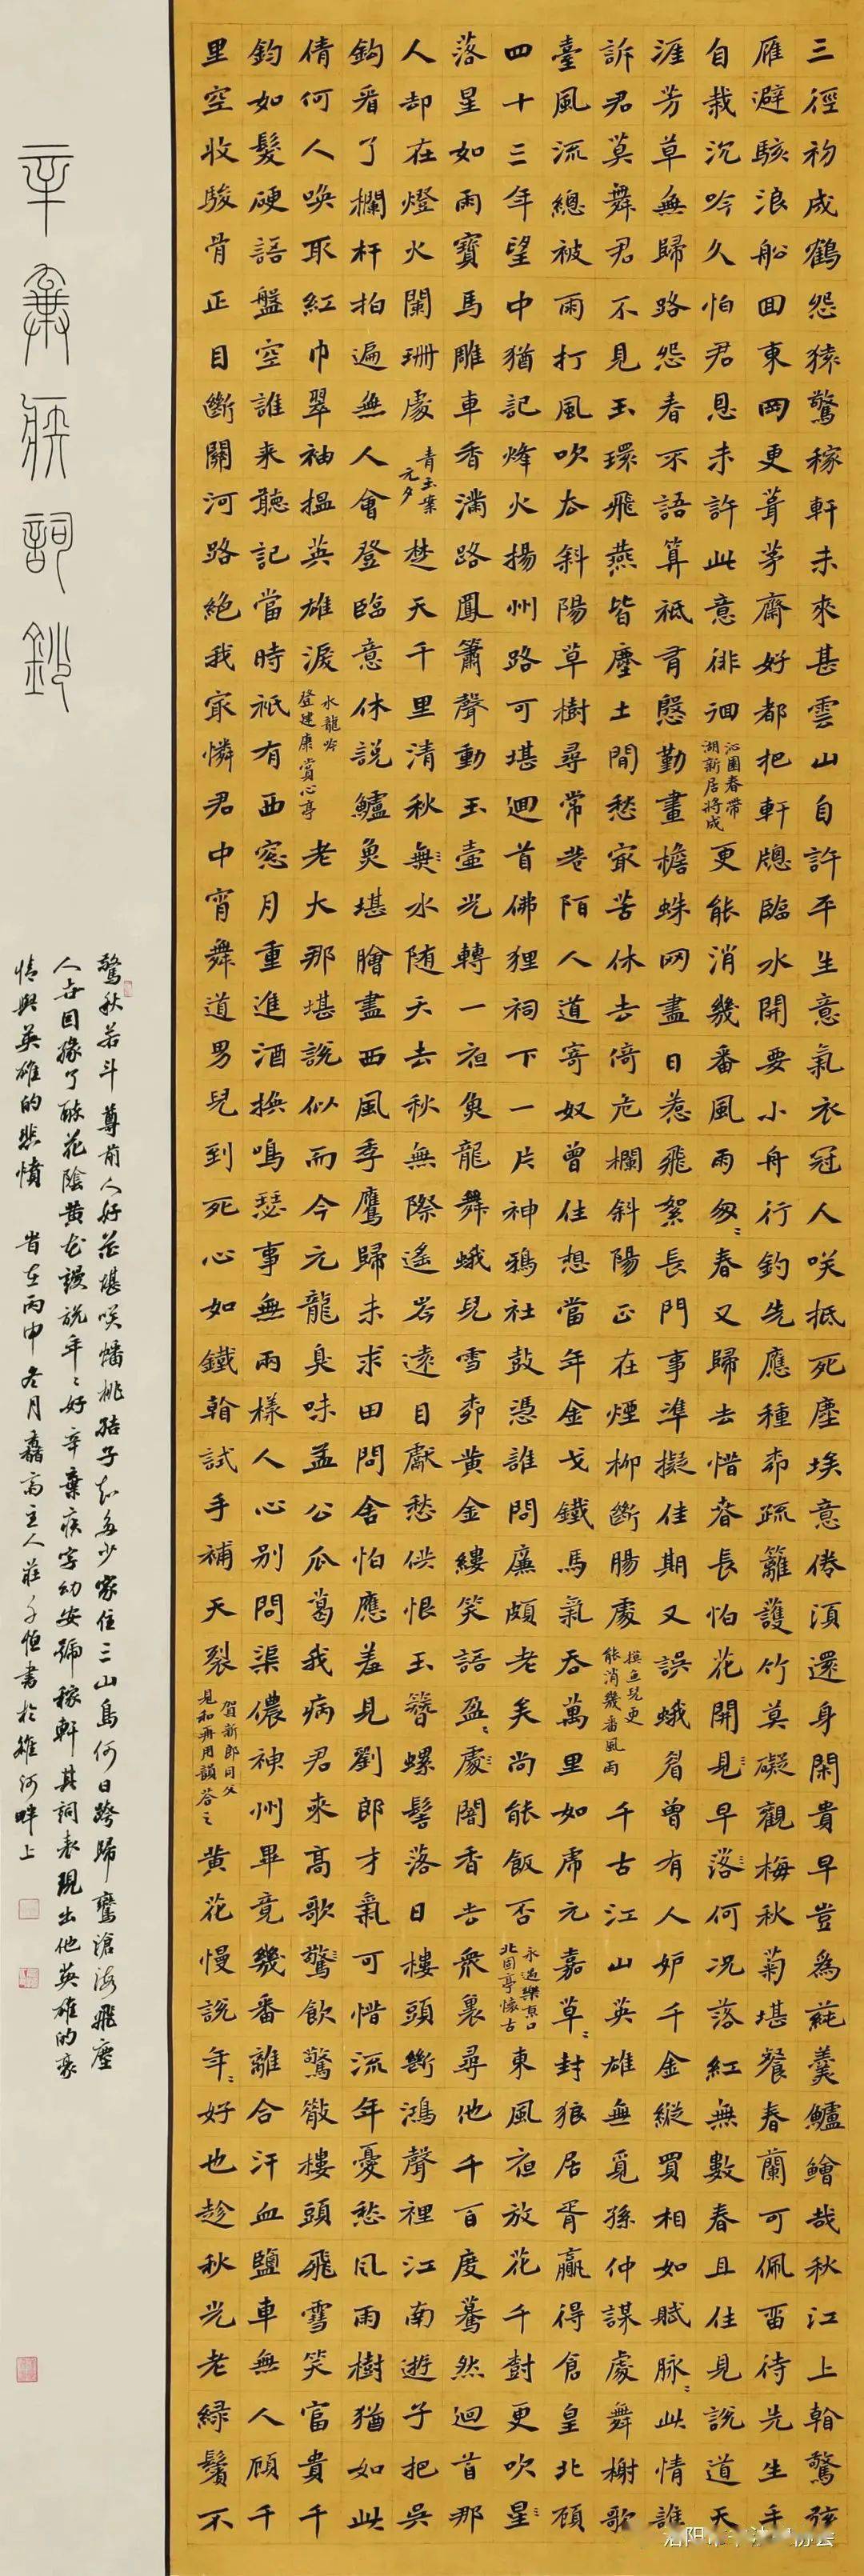 三徑初成鶴怨猿驚稼軒未來甚雲山自許平生意氣衣冠人咲抵死塵埃意倦湏還身閑貴早豈為蓴羹鱸鱠哉秋江上看驚弦
雁避駭浪船回東岡更葺茅齋好都把軒牕臨水開要小舟行釣先應種柳疏籬護竹莫礙觀梅秋菊堪餐春蘭可佩留待先生手
自栽沉吟久怕君恩未許此意徘徊 沁園春帶湖新居將成 更能消幾番風雨匆〻春又歸去惜春長怕花開見早落何況落紅無數春且住見說道天
涯芳草無歸路怨春不語算祗有慇勤畫檐蛛网盡日惹飛絮長門事準擬佳期又誤蛾眉曾有人妒千金縱買相如賦脉〻此情誰
訴君莫舞君不見玉環飛燕皆塵土閒愁最苦休去倚危欄斜陽正在煙柳斷腸處 摸魚兒更能消幾番風雨 千古江山英雄無覓孫仲謀處舞榭歌
臺風流總被雨打風吹去斜陽草樹尋常巷陌人道寄奴曾住想當年金戈鐵馬氣吞萬里如虎元嘉草〻封狼居胥贏得倉皇北顧
四十三年望中猶記烽火揚州路可堪迴首佛狸祠下一片神鴉社鼓憑誰問廉頗老矣尚能飯否 永遇樂京口北固亭懷古 東風夜放花千樹更吹星
落星如雨寶馬雕車香滿路鳳簫聲動玉壺光轉一夜魚龍舞蛾兒雪柳黃金縷笑語盈〻處闇香去衆裏尋他千百度驀然迴首那
人却在燈火闌珊處 青玉案元夕 楚天千里清秋無水随天去秋無際遙岑遠目獻愁供恨玉簪螺髻落日樓頭斷鴻聲裡江南遊子把吳
鈎看了欄杆拍遍無人會登臨意休說鱸魚堪膾盡西風季鷹歸未求田問舍怕應羞見劉郎才氣可惜流年憂愁風雨樹猶如此
倩何人喚取紅巾翠袖揾英雄淚 水龍吟登建康賞心亭 老大那堪說似而今元龍臭味孟公瓜葛我病君來高歌驚飲驚散樓頭飛雪笑富貴千
鈞如髮硬語盤空誰來聽記當時祇有西窓月重進酒換鳴瑟事無兩樣人心別問渠儂神州畢竟幾番離合汗血鹽車無人顧千
里空收駿骨正目斷關河路絕我最憐君中宵舞道男兒到死心如鐵看試手補天裂 賀新郎同父見和再用韻答之 黃花慢說年〻好也趁秋光老綠鬢不
辛棄疾詞鈔
驚秋若斗尊前人好花堪咲蟠桃結子知多少家住三山島何日跨歸鸞滄海飛塵
人世因緣了醉花陰黃花謾說年〻好辛棄疾字幼安號稼軒其詞表現出他英雄的豪
情與英雄的悲憤 旹在丙申冬月主人莊子恒書於雒河畔上